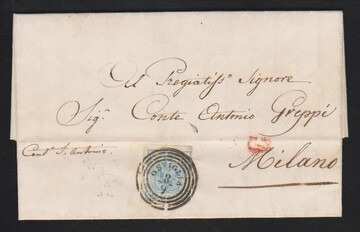 Al Pregiatiss° Signore
Sig. Conte Antonio Greppi
Cont. S. Antonio.
Milano
OSTIGLIA